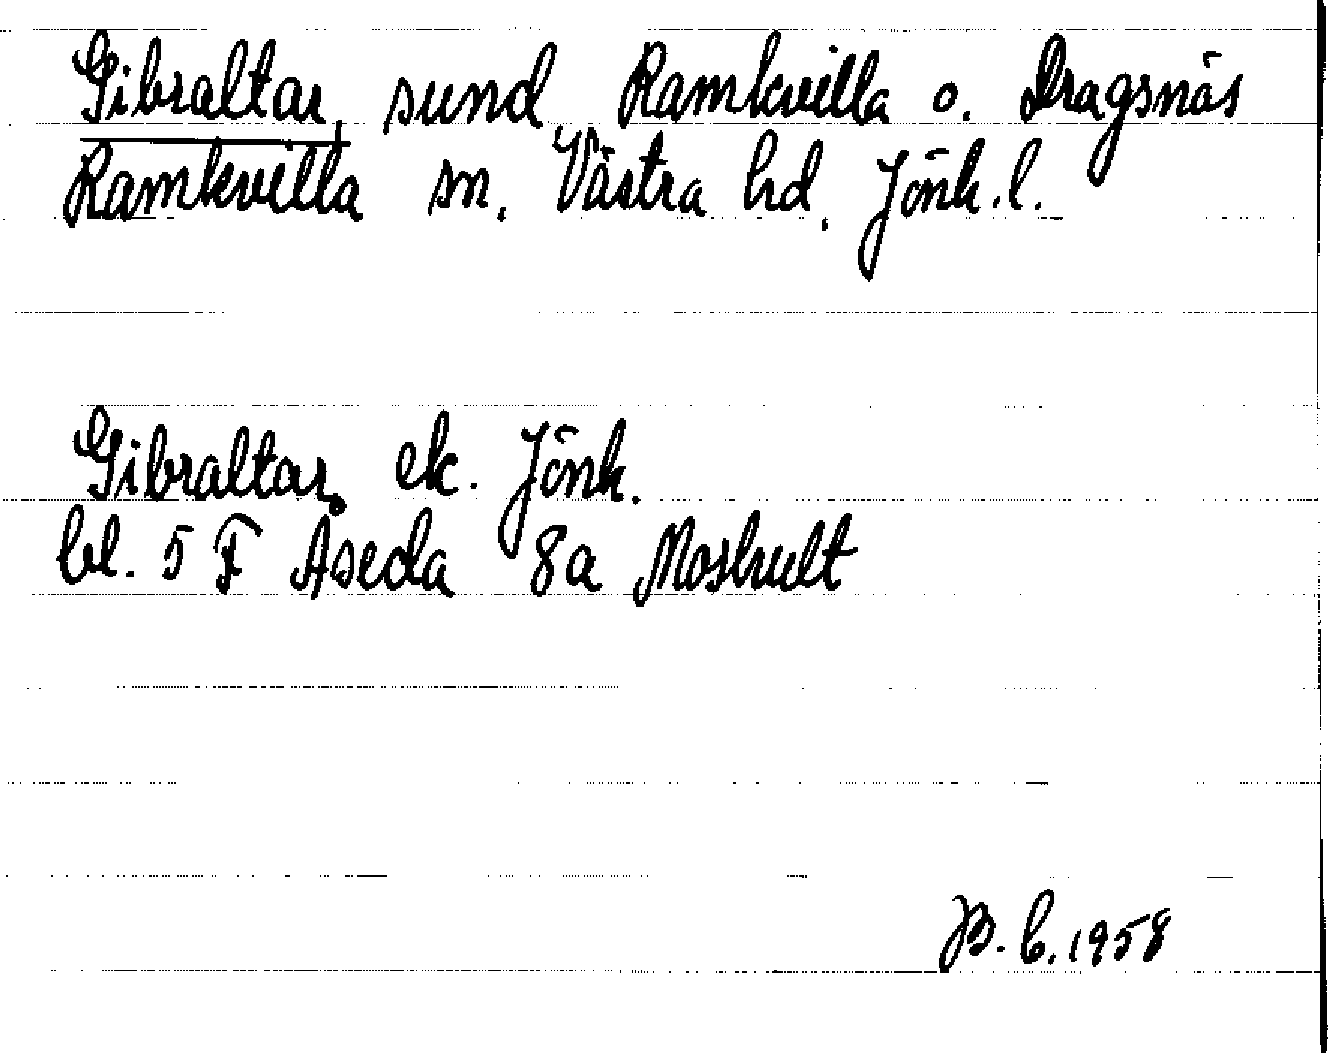 Gibraltar, sund, Ramkvilla o. Dragsnäs
Ramkvilla sn, Västra hd, Jönk.l.
Gibraltar, ek. Jönk.
bl. 5 F Åseda 8a Moshult
B. C. 1958